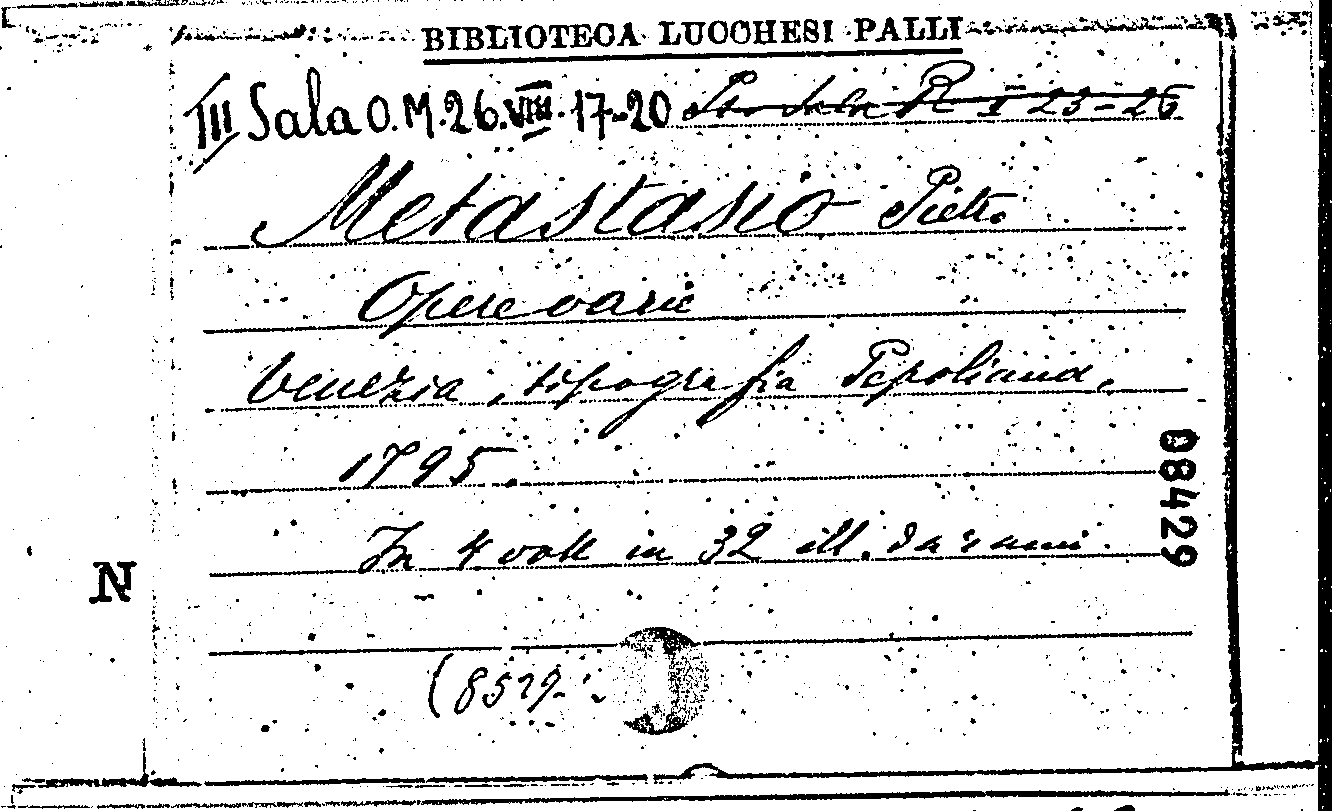 BIBLIOTECA LUCCHESI PALLI
III Sala O.M.26.VIII.17-20 R I 23-26
Metastasio Pietro
Opere varie
Venezia, tipografia Pepoliana,
1795.
In 4 voll in 32 ill. da rami.
08429
N
(8529